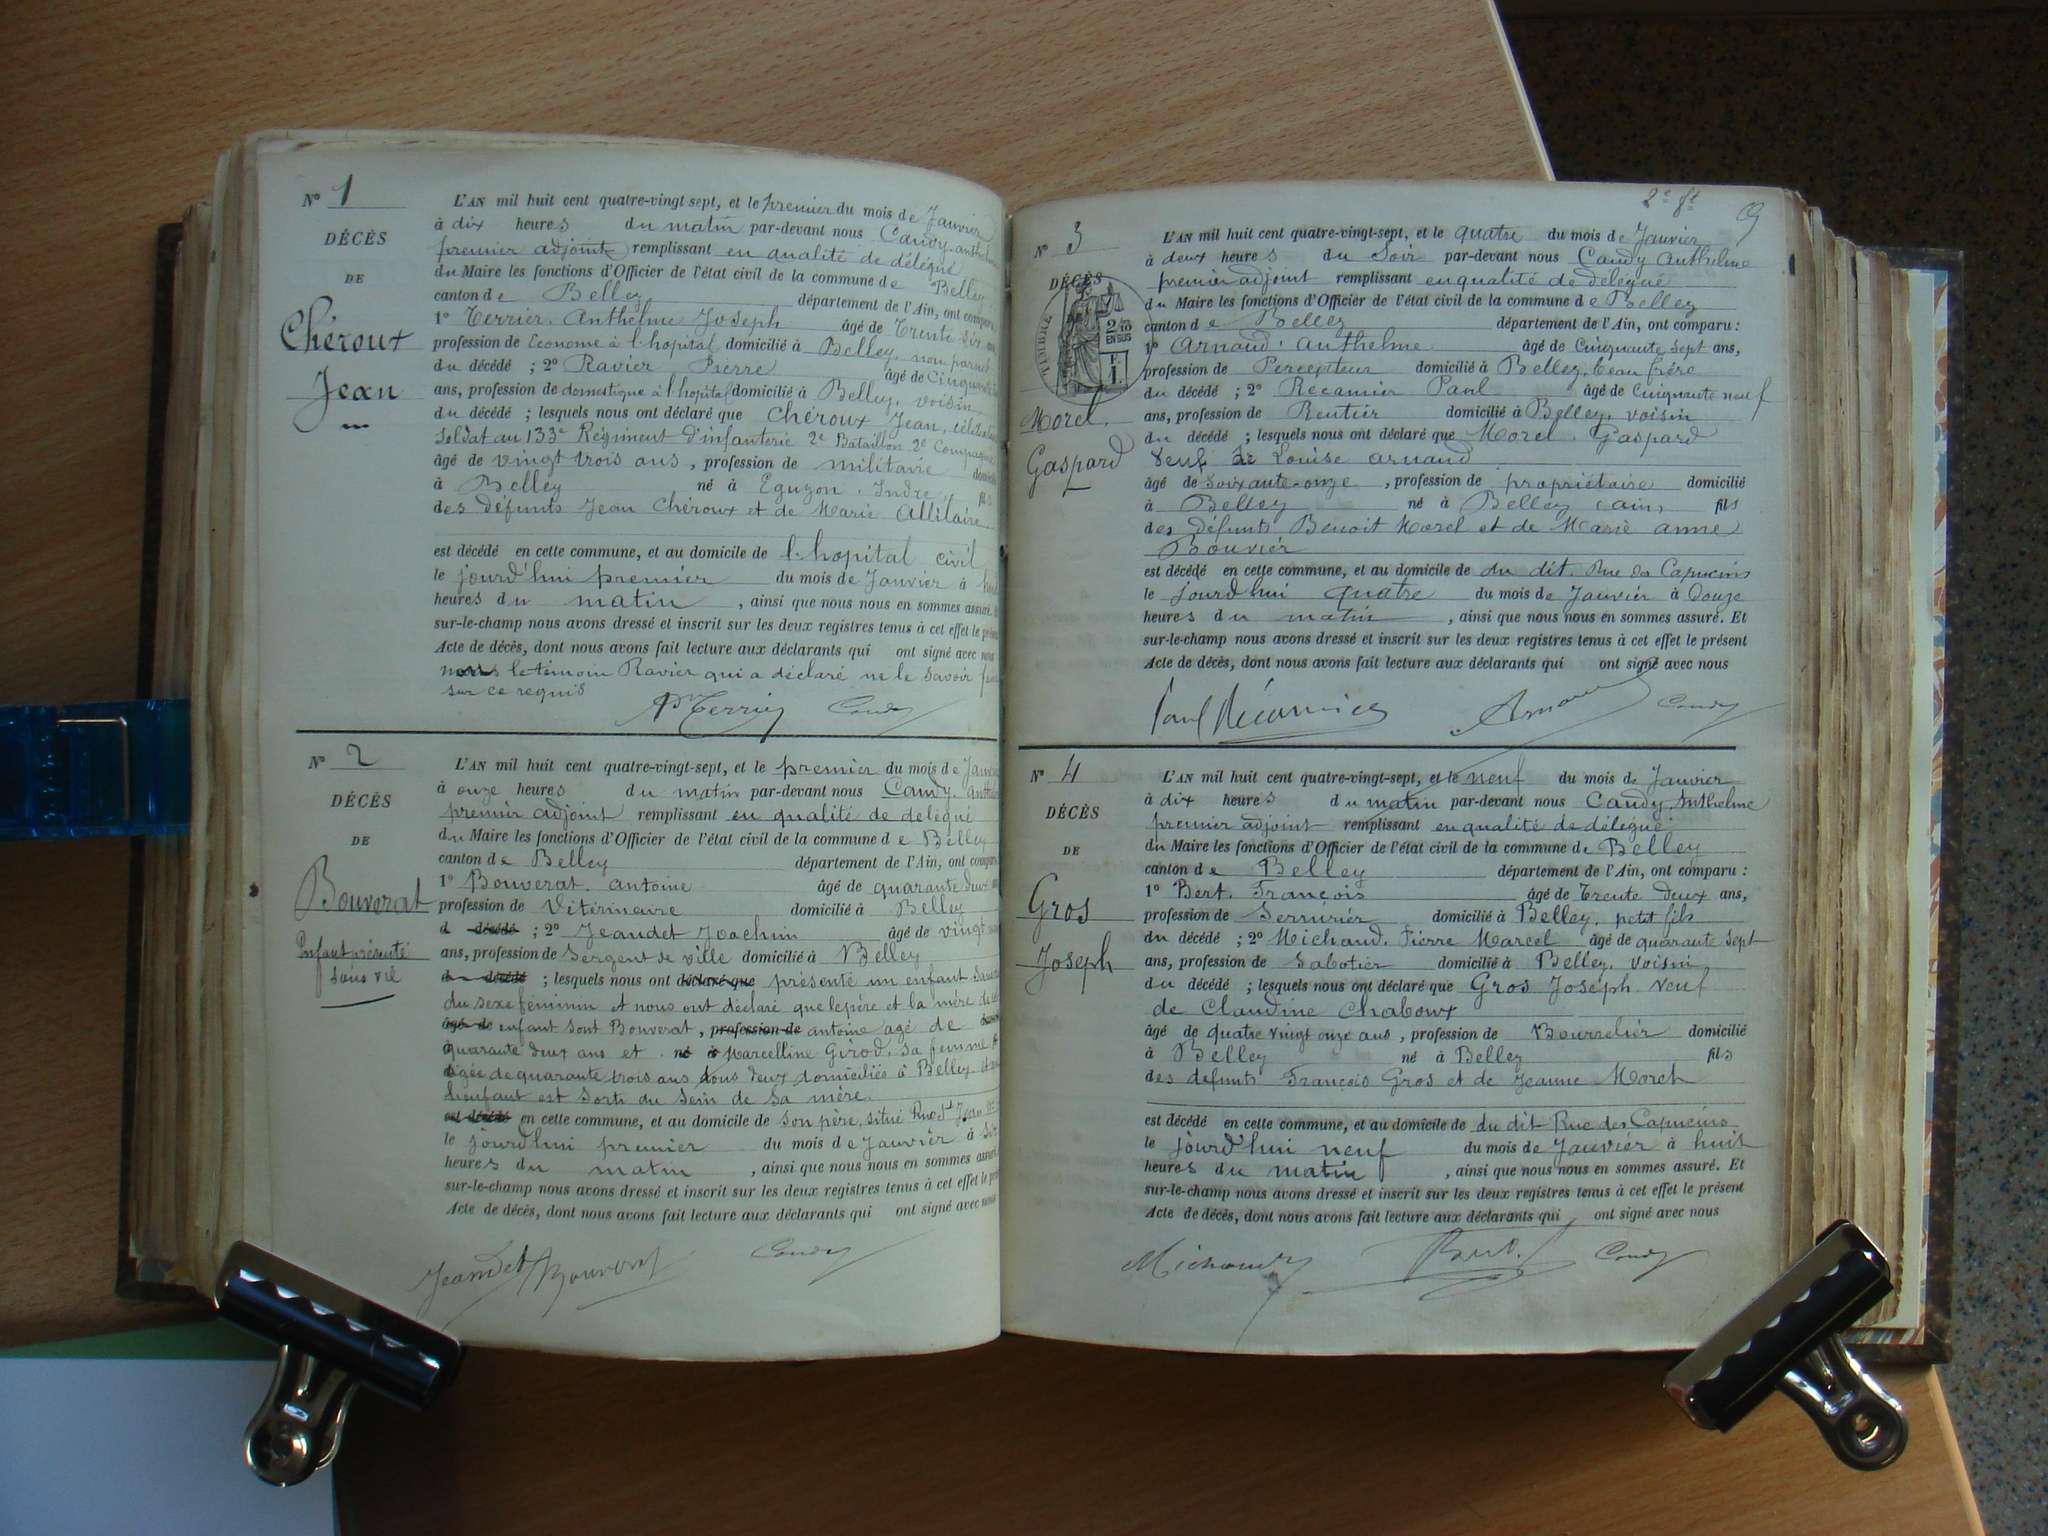 N° 1
DÉCÈS
DE
Chéroux
Jean
L'AN mil huit cent quatre-vingt sept, et le premier du mois de Janvier
à dix heures du matin par-devant nous Candy Anthelme
premier adjoint remplissant en qualité de délégué
du Maire les fonctions d'Officier de l'état civil de la commune de Belley
canton de Belley département de l'Ain, ont comparu
1° Terrier. Anthelme Joseph âgé de Trente six ans
profession de Econome à l'hopital domicilié à Belley, non parent
du décédé ; 2° Ravier Pierre âgé de Cinquante
ans, profession de domestique à l'hopital domicilié à Belley, voisin
du décédé ; lesquels nous ont déclaré que Chéroux Jean, célibataire
Soldat au 133e Régiment d'infanterie 2e Bataillon 2e Compagnie
âgé de vingt trois ans, profession de militaire domicilié
à Belley né à Eguzon. Indre, fils
des défunts Jean Chéroux et de Marie Allilaire
est décédé en cette commune, et au domicile de l'hopital civil
le jourd'hui premier du mois de Janvier à huit
heures du matin, ainsi que nous nous en sommes assuré. Et
sur-le-champ nous avons dressé et inscrit sur les deux registres tenus à cet effet le présent
Acte de décès, dont nous avons fait lecture aux déclarants qui ont signé avec nous
le témoin Ravier qui a déclaré ne le savoir faire
sur ce requis
Terrier Candy
N° 2
DÉCÈS
DE
Bouverat
Enfant présenté
sans vie
L'AN mil huit cent quatre-vingt-sept, et le premier du mois de Janvier
à onze heures du matin par-devant nous Candy Anthelme
premier adjoint remplissant en qualité de délégué
du Maire les fonctions d'Officier de l'état civil de la commune de Belley
canton de Belley département de l'Ain, ont comparu
1° Bouverat. Antoine âgé de quarante deux ans
profession de Vétérinaire domicilié à Belley
d décédé ; 2° Jeandet Joachim âgé de vingt
ans, profession de Sergent de ville domicilié à Belley
d décédé ; lesquels nous ont déclaré que présenté un enfant sans vie
du sexe féminin et nous ont déclaré que le père et la mère de cet
âgé de enfant sont Bouverat, profession de antoine agé de
quarante deux ans et né à Marcelline Girod, sa femme
agée de quarante trois ans tous deux domiciliés à Belley et que
l'enfant est sorti du sein de sa mère.
est décédé en cette commune, et au domicile de son père, situé Rue St Jean
le jourd'hui premier du mois de Janvier à six
heures du matin, ainsi que nous nous en sommes assuré. Et
sur-le-champ nous avons dressé et inscrit sur les deux registres tenus à cet effet le présent
Acte de décès, dont nous avons fait lecture aux déclarants qui ont signé avec nous
Jeandet Bouverat Candy
2e ft
N° 3
DÉCÈS
TIMBRE
2/10
EN SUS
Morel.
Gaspard
L'AN mil huit cent quatre-vingt-sept, et le quatre du mois de Janvier
à deux heures du Soir par-devant nous Candy Anthelme
premier adjoint remplissant en qualité de délégué
du Maire les fonctions d'Officier de l'état civil de la commune de Belley
canton de Belley département de l'Ain, ont comparu :
1° Arnaud. Anthelme âgé de Cinquante sept ans,
profession de Percepteur domicilié à Belley, beau frère
du décédé ; 2° Recamier Paul âgé de Cinquante neuf
ans, profession de Rentier domicilié à Belley, voisin
du décédé ; lesquels nous ont déclaré que Morel. Gaspard
Veuf de Louise Arnaud
âgé de Soixante-onze, profession de propriétaire domicilié
à Belley né à Belley (ain) fils
des défunts Benoit Morel et de Marie Anne
Bouvier
est décédé en cette commune, et au domicile de du dit. Rue des Capucins
le jourd'hui quatre du mois de Janvier à Douze
heures du matin, ainsi que nous nous en sommes assuré. Et
sur-le-champ nous avons dressé et inscrit sur les deux registres tenus à cet effet le présent
Acte de décès, dont nous avons fait lecture aux déclarants qui ont signé avec nous
Paul Récamier Arnaud Candy
N° 4
DÉCÈS
DE
Gros
Joseph
L'AN mil huit cent quatre-vingt-sept, et le neuf du mois de Janvier
à dix heures du matin par-devant nous Candy, Anthelme
premier adjoint remplissant en qualité de délégué
du Maire les fonctions d'Officier de l'état civil de la commune de Belley
canton de Belley département de l'Ain, ont comparu :
1° Bert. François âgé de Trente deux ans,
profession de Serrurier domicilié à Belley, petit fils
du décédé ; 2° Michaud. Pierre Marcel âgé de quarante sept
ans, profession de Sabotier domicilié à Belley, voisin
du décédé ; lesquels nous ont déclaré que Gros Joseph veuf
de Claudine Chaboux
âgé de quatre vingt onze ans, profession de Bourrelier domicilié
à Belley né à Belley fils
des défunts François Gros et de Jeanne Morel
est décédé en cette commune, et au domicile de du dit Rue des Capucins
le jourd'hui neuf du mois de Janvier à huit
heures du matin, ainsi que nous nous en sommes assuré. Et
sur-le-champ nous avons dressé et inscrit sur les deux registres tenus à cet effet le présent
Acte de décès, dont nous avons fait lecture aux déclarants qui ont signé avec nous
Michaud Bert. Candy